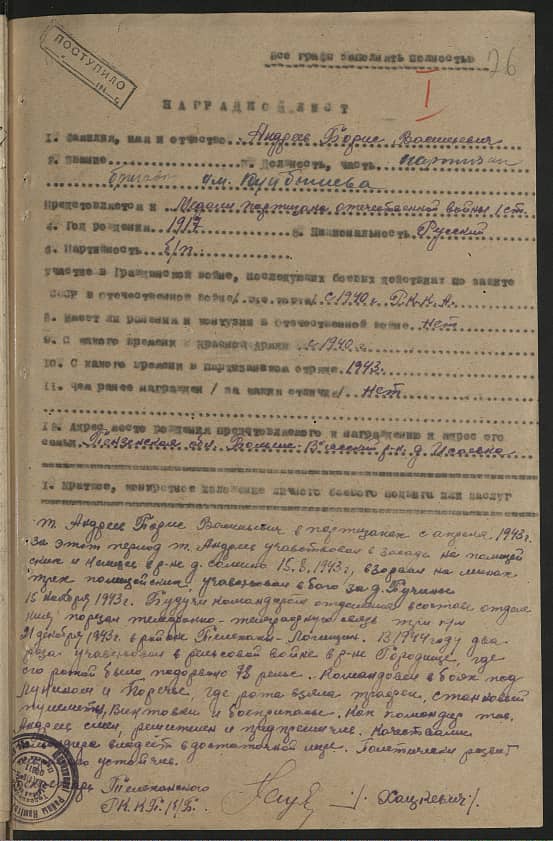 ПОСТУПИЛО
Все графы заполнять полностью
26
I
НАГРАДНОЙ ЛИСТ
1. Фамилия, имя и отчество Андреев Борис Васильевич
2. Звание 3. Должность, часть партизан
бригады им. Куйбышева
Представляется к Медали партизана отечественной войны I ст.
4. Год рождения 1917 5. Национальность Русский
6. Партийность б/п
участие в Гражданской войне, последующих боевых действиях по защите
СССР и отечественной войне/ с 1940 г. Р.К.К.А.
8. Имеет ли ранения и контузии в Отечественной войне нет
9. С какого времени в Красной Армии с 1940 г.
10. С какого времени в Партизанском отряде 1943 г.
11. Чем ранее награжден / за какие отличия/ нет
12. Адрес, место рождения представляемого к награждению и адрес его
семьи Пензенская обл. р-н. д.
I. Краткое, конкретное изложение личного боевого подвига или заслуг
т. Андреев Борис Васильевич в партизанах с апреля 1943 г.
за этот период т. Андреев участвовал в засаде на полицей
ских и немцев в р-не д. 15.8.1943 г., взорвал на минах
трех полицейских, участвовал в бою за д.
15 ноября 1943 г. Будучи командиром отделения в составе отделе
ния порезал телефонно-телеграфную связь три км
21 декабря 1943 г. в районе Телеханы - Логишин. В 1944 году два
раза участвовал в рельсовой войне в р-не Городище, где
его ротой было подорвано 78 рельс. Командовал в боях под
и Поречье, где рота взяла трофеи, станковый
пулемет, винтовки и боеприпасы. Как командир тов.
Андреев смел, решителен и предприимчив. Качествами
командира владеет в достаточной мере. Политически развит
устойчив.
Телеханского
РК КП/б/Б. /Хацкевич/.